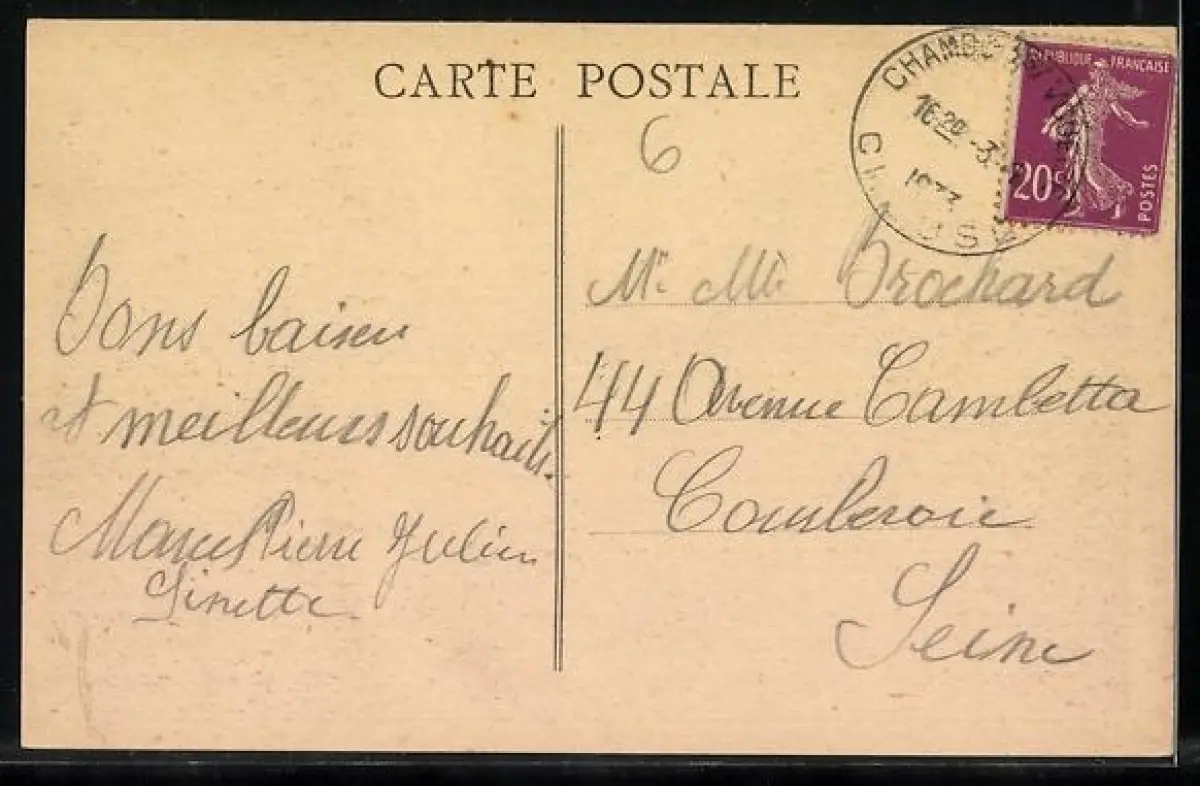 CARTE POSTALE
6
16 20
RÉPUBLIQUE FRANÇAISE
20c
POSTES
Bons baisers
et meilleurs souhaits.
Marcel Pierre Julien
Ginette
Mr Mme Brochard
44 Avenue Gambetta
Courbevoie
Seine